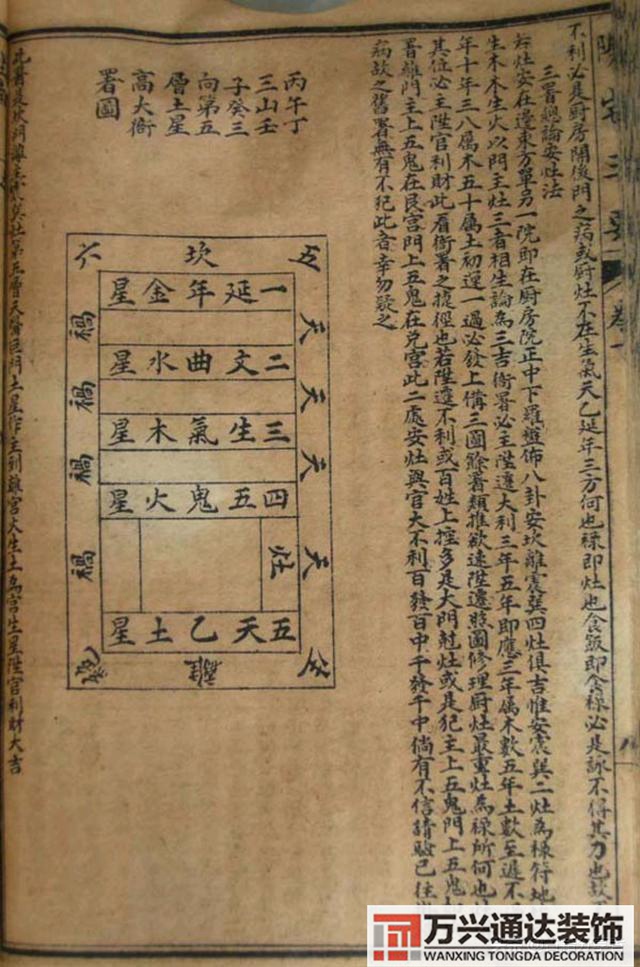 陽宅三要 卷一
不利必是厨房開後門之病或厨灶不在生氣天乙延年三方何也祿即灶也食飯即食祿必是詠不得其力也故
三署總論安灶法
右灶安在邊東方單另一院即在厨房院正中下羅盤佈八卦安坎離震巽四灶俱吉惟安震巽二灶為祿符地
生木木生火以門主灶三者相生論為三吉衙署必主陞遷大利三年五年即應三年屬木數五年土數至遲不
年十年三八屬木五十屬土初運一過必發上備三圖餘署類推欲速陞遷照圖修理厨灶最重灶為祿所何也
其位必主陞官利財此看衙署之捷徑也若陞遷不利或百姓上控多是大門尅灶或是犯主上五鬼門上五鬼
署離門主上五鬼在艮宮門上五鬼在兑宮此二處安灶與官大不利百發百中千發千中倘有不信請驗已往
病故之舊署無有不犯此者幸勿疑之
丙午丁
三山壬
子癸三
向第五
層土星
高大衙
署圖
五 坎 六
一延年金星
二文曲水星
三生氣木星
四五鬼火星
灶
五天乙土星
天
天
天
天
禍
禍
禍
禍
離
此署是坎門離主巽灶第五層天醫巨門土星作主到離宮火生土為宮生星陞官利財大吉
万兴通达装饰
WANXING TONGDA DECORATION